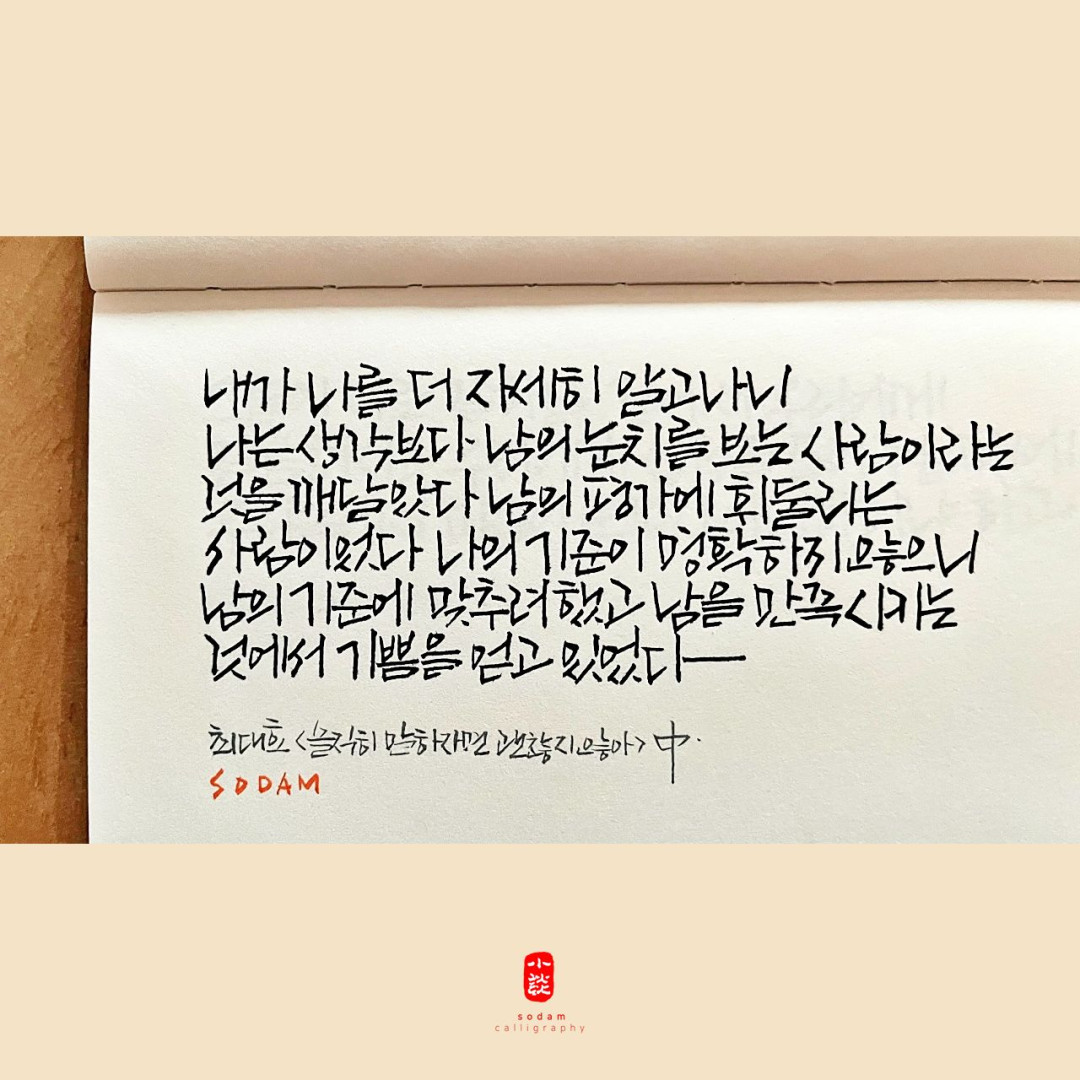 내가 나를 더 자세히 알고나니
나는 생각보다 남의 눈치를 보는 사람이라는
것을 깨달았다 남의 평가에 휘둘리는
사람이었다 나의 기준이 명확하지 않으니
남의 기준에 맞추려했고 남을 만족시키는
것에서 기쁨을 얻고 있었다
최대호 <솔직히 말하자면 괜찮지 않아> 中.
SODAM
小談
sodam
calligraphy